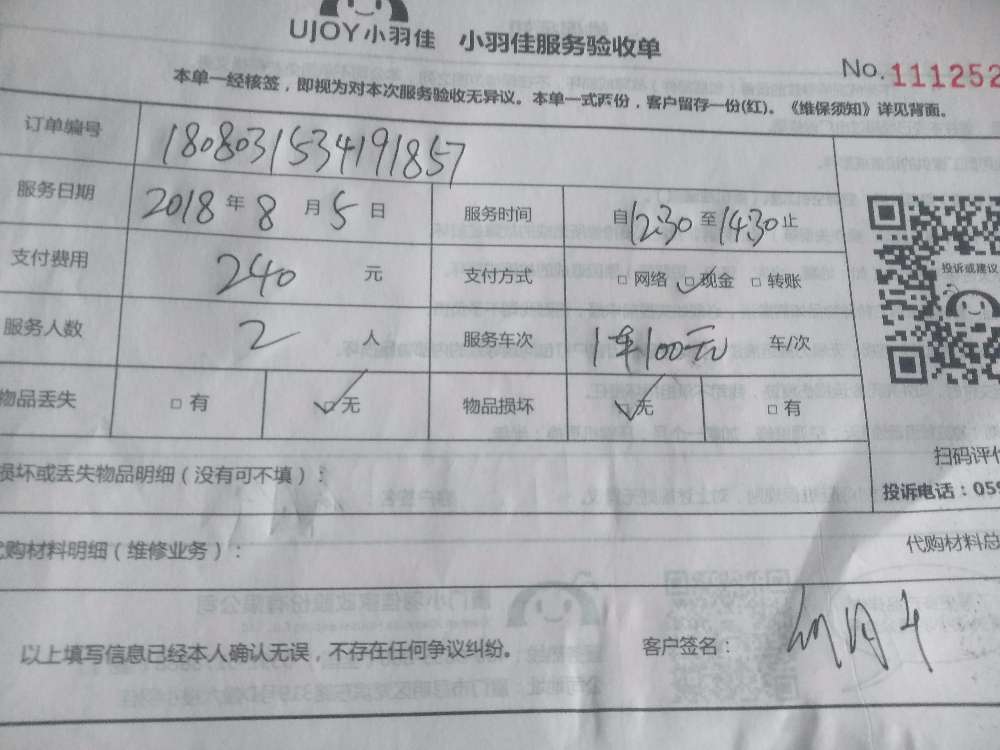 UJOY小羽佳 小羽佳服务验收单
No. 111252
本单一经核签，即视为对本次服务验收无异议。本单一式两份，客户留存一份(红)。《维保须知》详见背面。
订单编号 1808031534191857
服务日期 2018 年 8 月 5 日 服务时间 自 12:30 至 14:30 止
支付费用 240 元 支付方式 □ 网络 ☑ 现金 □ 转账
投诉或建议
服务人数 2 人 服务车次 1车100元 车/次
物品丢失 □ 有 ☑ 无 物品损坏 ☑ 无 □ 有
损坏或丢失物品明细（没有可不填）：
扫码评价
投诉电话：059
代购材料明细（维修业务）：
代购材料总
以上填写信息已经本人确认无误，不存在任何争议纠纷。 客户签名：